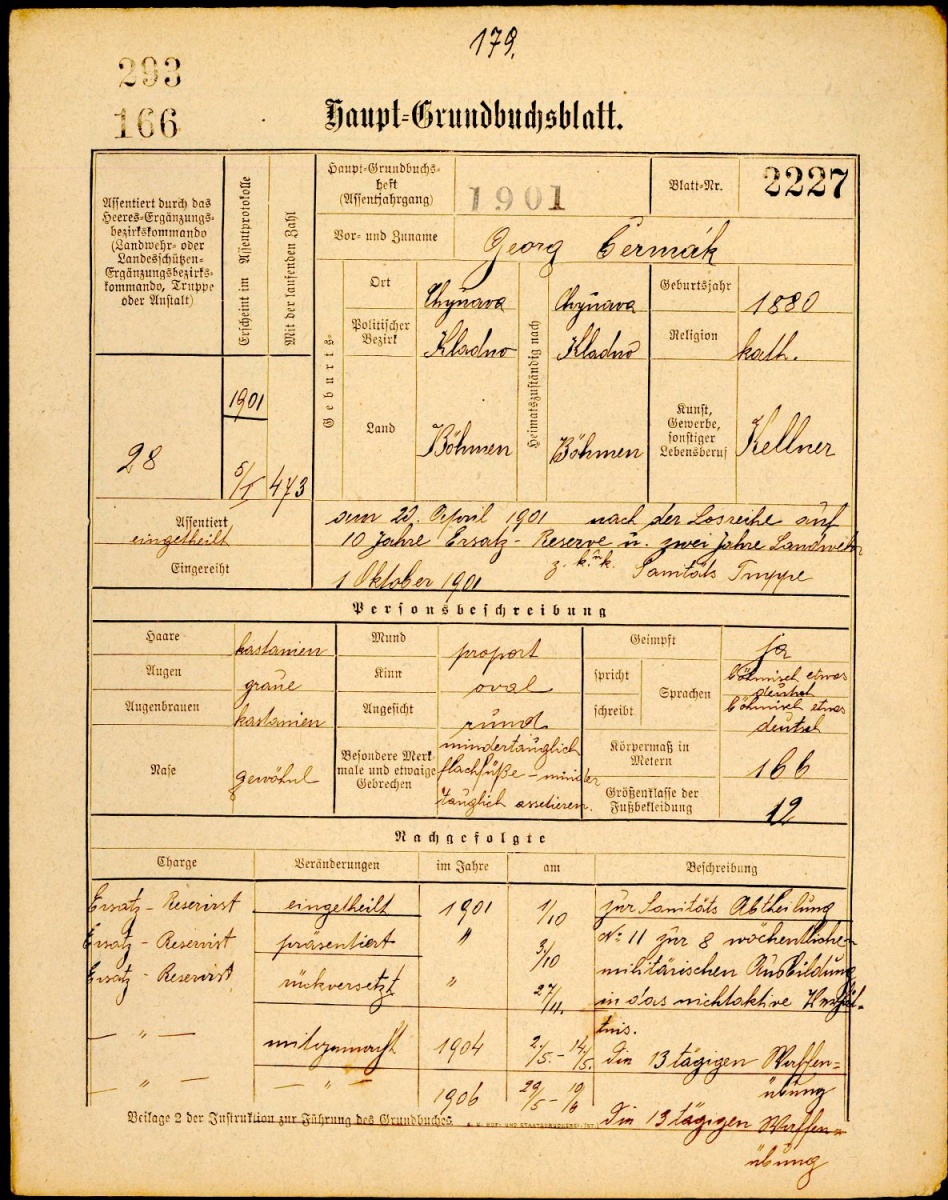 179.
293
166
Haupt-Grundbuchsblatt.
Assentiert durch das
Heeres-Ergänzungs-
bezirkskommando
(Landwehr- oder
Landesschützen-
Ergänzungsbezirks-
kommando, Truppe
oder Anstalt)
28
Erscheint im Assentprotokolle
1901
5/I
Mit der laufenden Zahl
473
Haupt-Grundbuchs-
heft
(Assentjahrgang)
1901
Blatt-Nr.
2227
Vor- und Zuname
Georg Čermák
Geburts-
Ort
Chyňava
Politischer
Bezirk
Kladno
Land
Böhmen
Heimatszuständig nach
Chyňava
Kladno
Böhmen
Geburtsjahr
1880
Religion
kath.
Kunst,
Gewerbe,
sonstiger
Lebensberuf
Kellner
Assentiert
eingetheilt
Eingereiht
am 22. April 1901 nach der Losreihe auf
10 Jahre Ersatz-Reserve u. zwei Jahre Landwehr
z. k. u. k. Sanitäts Truppe
1 Oktober 1901
Personsbeschreibung
Haare
kastanien
Augen
graue
Augenbrauen
kastanien
Nase
gewöhnl
Mund
proport
Kinn
oval
Angesicht
rund
Besondere Merk
male und etwaige
Gebrechen
mindertauglich
flachfüße - minder
tauglich assetieren.
Geimpft
ja
spricht
schreibt
Sprachen
böhmisch etwas
deutsch
böhmisch etwas
deutsch
Körpermaß in
Metern
166
Größenklasse der
Fußbekleidung
12
Nachgefolgte
Charge Veränderungen im Jahre am Beschreibung
Ersatz-Reservist eingetheilt 1901 1/10 zur Sanitäts Abtheilung
Ersatz-Reservist präsentiert " 3/10 No 11 zur 8 wöchentliche
militärischen Ausbildung
Ersatz-Reservist rückversetzt " 27/11. in das nichtaktive Verhält-
tnis.
— " — mitgemacht 1904 2/5. - 14/5. Die 13 tägigen Waffen=
übung
— " — — " — 1906 29/5 - 10/6 Die 13 tägigen Waffen=
übung
Beilage 2 der Instruktion zur Führung des Grundbuches